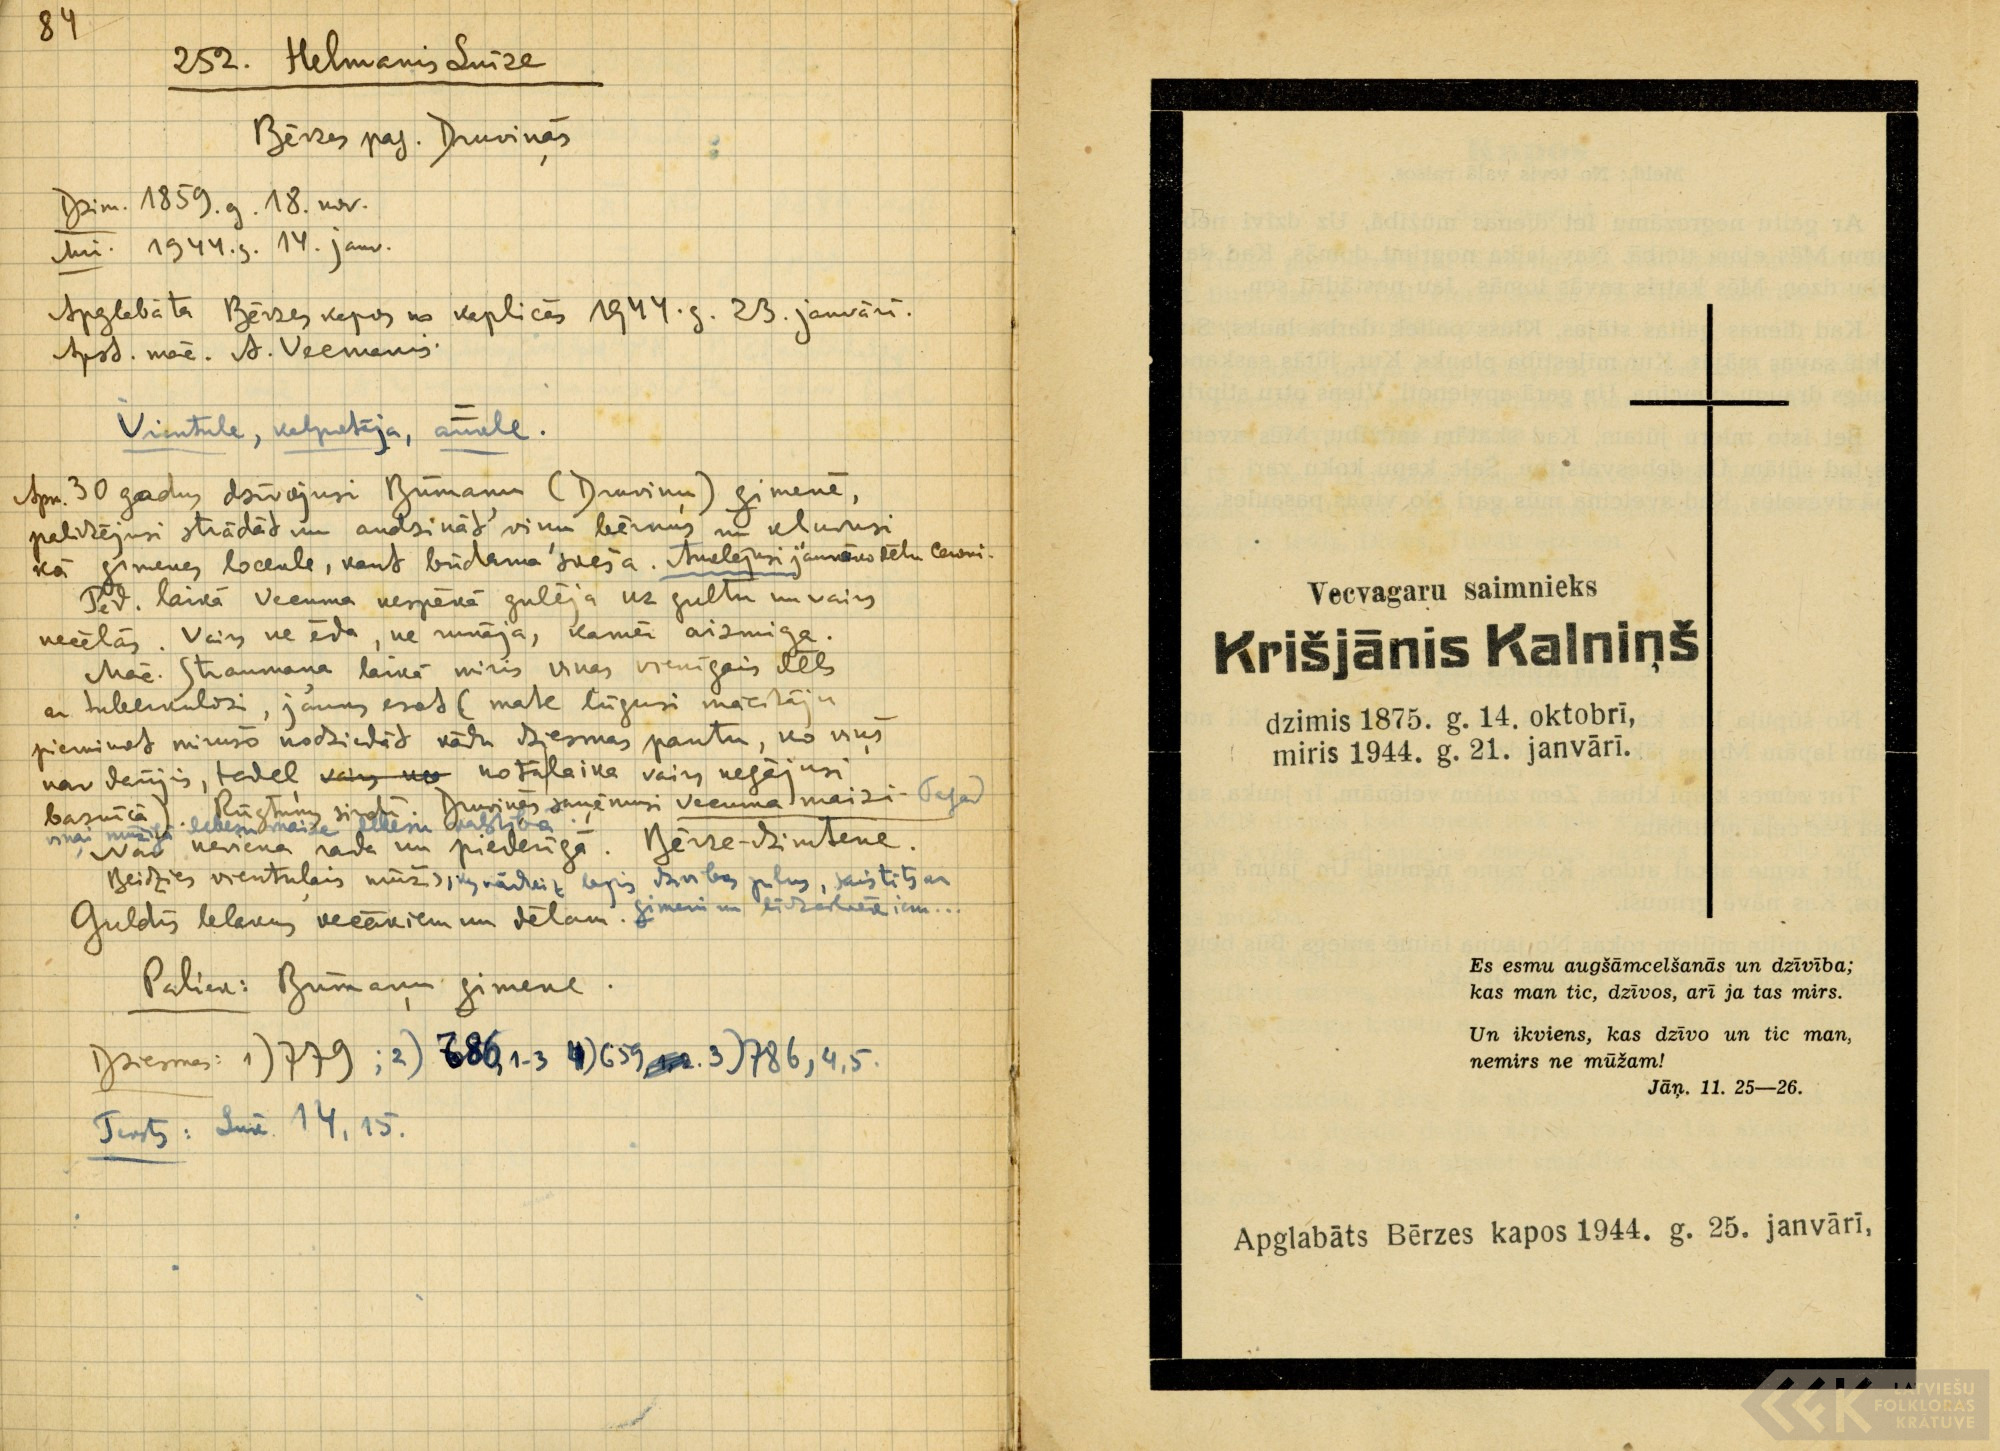 84
252. Helmanis Luīze
Bērzes pag. Druviņās
Dzim. 1859. g. 18. nov.
Miri. 1944. g. 14. janv.
Apglabāta Bērzes kapos no kapličas 1944. g. 23. janvārī.
Apst. māc. A. Vecmanis.
Vientule, kalpotāja, aukle.
Apm. 30 gadus dzīvojusi Būmaņu (Druviņu) ģimenē,
palīdzējusi strādāt un audzināt viņu bērnus un kļuvusi
kā ģimenes locekle, kaut būdama sveša. Auklējusi jaunāko dēlu
Pēd. laikā vecuma nespēkā gulēja uz gultu un vairs
necēlās. Vairs ne ēda, ne runāja, kamēr aizmiga.
Māc. Straumaņa laikā miris viņas vienīgais dēls
ar tuberkulōzi, jauns esot (māte lūgusi mācītāju
pieminot mirušo nodziedāt kādu dziesmas pantu, ko viņš
nav darījis, tādēļ vairs no no tā laika vairs negājusi
baznīcā). Rūgtums sirdī. Druviņās saņēmusi vecuma maizi. Tagad
viņai mūžīgā debesu maize debesu valstībā
Nav neviena rada un piederīgā. Bērze-dzimtene.
Beidzies vientuļais mūžs, kas kādreiz bijis dzīvības pilns, saistīts ar
Guldīs blakus vecākiem un dēlam. ģimeni un līdzcilvēkiem...
Paliek: Būmaņu ģimene.
Dziesmas: 1) 779; 2) 686, 1-3 4) 659, 3) 786, 4,5.
Teksts: Lūk. 14, 15.
Vecvagaru saimnieks
Krišjānis Kalniņš
dzimis 1875. g. 14. oktobrī,
miris 1944. g. 21. janvārī.
Es esmu augšāmcelšanās un dzīvība;
kas man tic, dzīvos, arī ja tas mirs.
Un ikviens, kas dzīvo un tic man,
nemirs ne mūžam!
Jāņ. 11. 25—26.
Apglabāts Bērzes kapos 1944. g. 25. janvārī,
LATVIEŠU
FOLKLORAS
KRĀTUVE